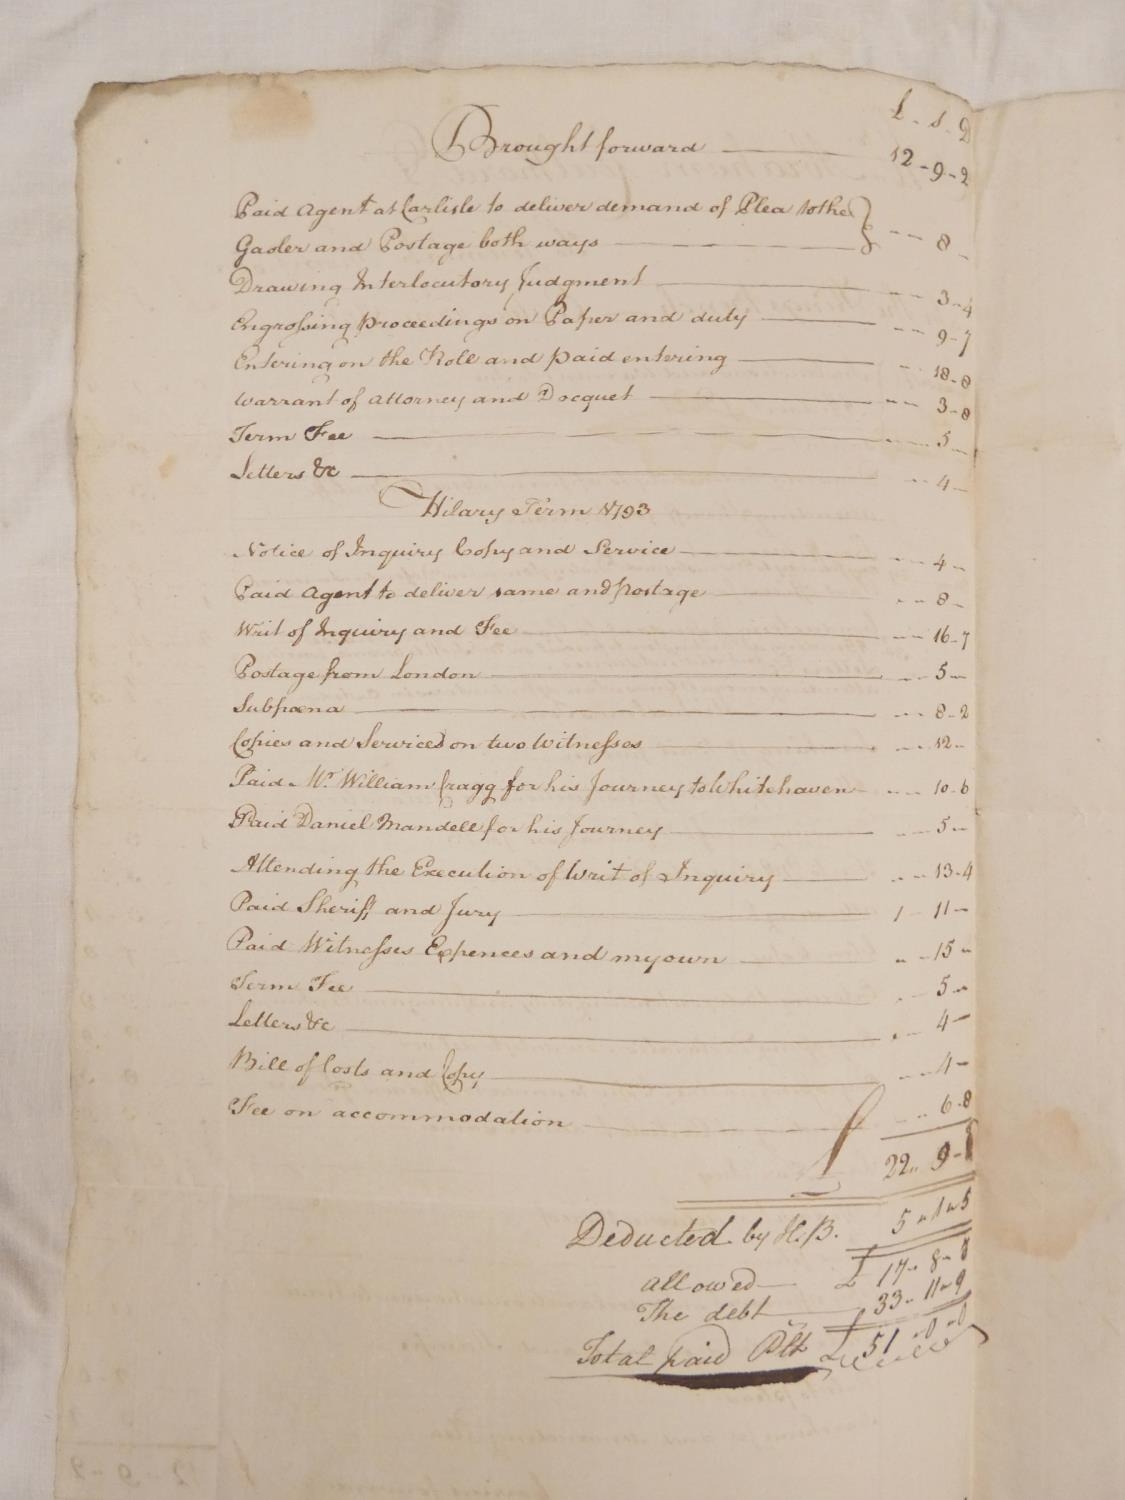 £ - s - D
Brought forward 12 - 9 - 2
Paid Agent at Carlisle to deliver demand of Plea to the
Gaoler and Postage both ways - - 8 -
Drawing Interlocutory Judgment - - 3 - 4
Engrossing proceedings on Paper and duty - - 9 - 7
Entering on the Roll and paid entering - - 18 - 8
Warrant of Attorney and Docquet - - 3 - 8
Term Fee - - 5 -
Letters &c - - 4 -
Hilary Term 1793
Notice of Inquiry Copy and Service - - 4 -
Paid Agent to deliver same and postage - - 8 -
Writ of Inquiry and Fee - - 16 - 7
Postage from London - - 5 -
Subpœna - - 8 - 2
Copies and Services on two Witnesses - - 12 -
Paid Mr. William Cragg for his Journey to Whitehaven - - 10 - 6
Paid Daniel Mandell for his Journey - - 5 -
Attending the Execution of Writ of Inquiry - - 13 - 4
Paid Sheriff and Jury 1 - 11 -
Paid Witnesses Expences and my own - - 15 -
Term Fee - - 5 -
Letters &c - - 4 -
Bill of Costs and Copy - - 4 -
Fee on accommodation - - 6 - 8
22 - 9 -
Deducted by H. B. 5 - 1 - 5
allowed £ 17 - 8 -
The debt 33 - 11 - 9
Total paid Plt £ 51 - 0 - 0